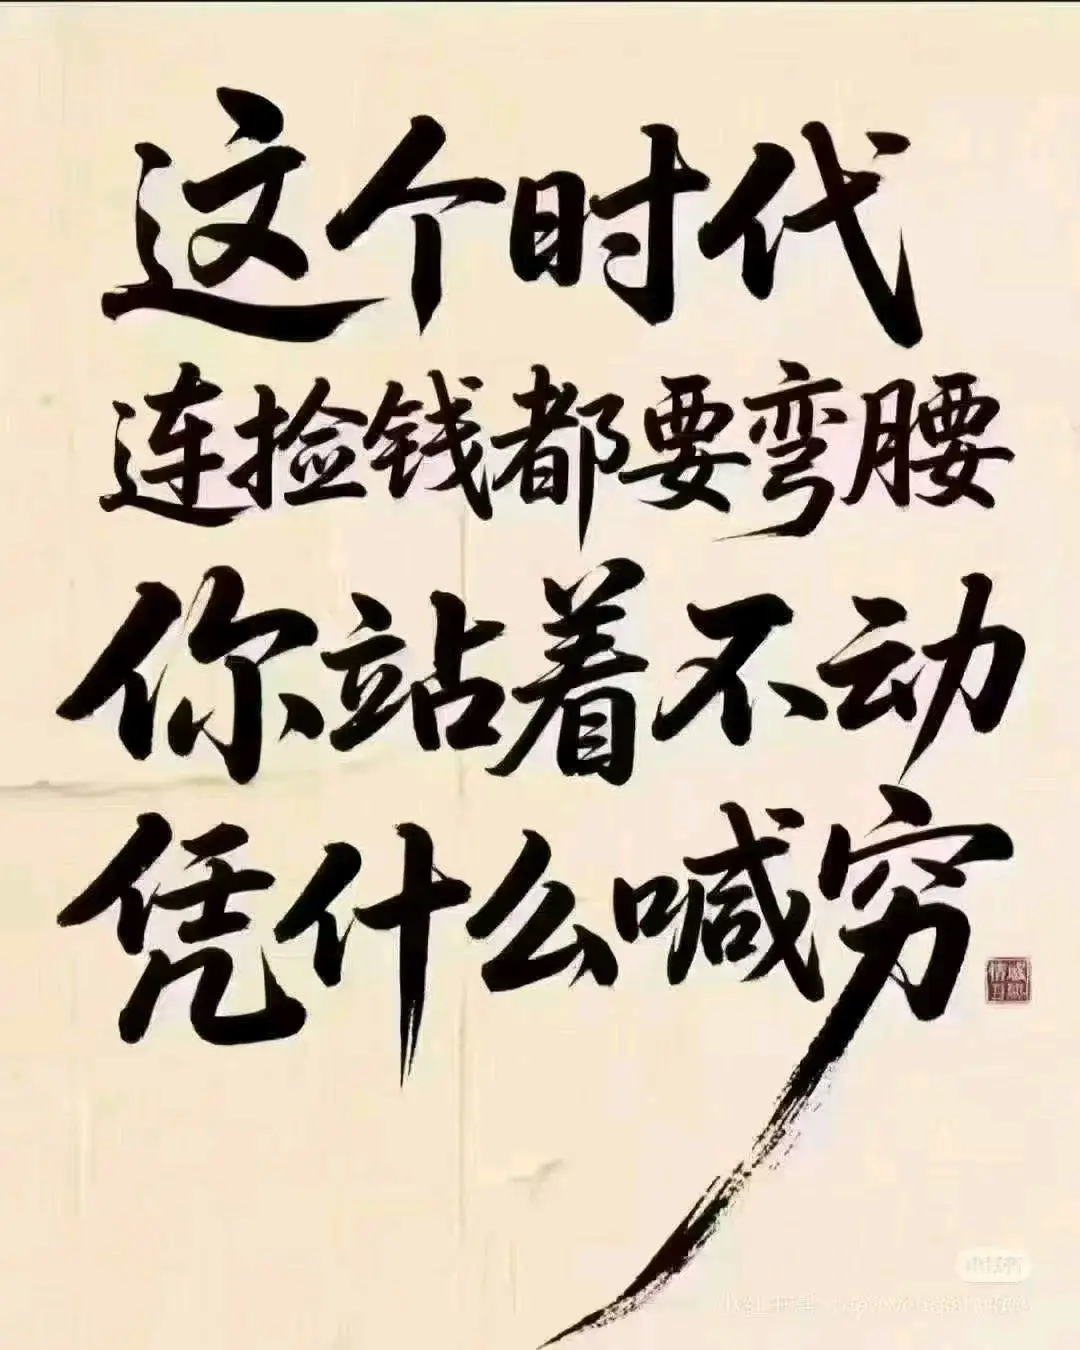 这个时代
连捡钱都要弯腰
你站着不动
凭什么喊穷
小红书